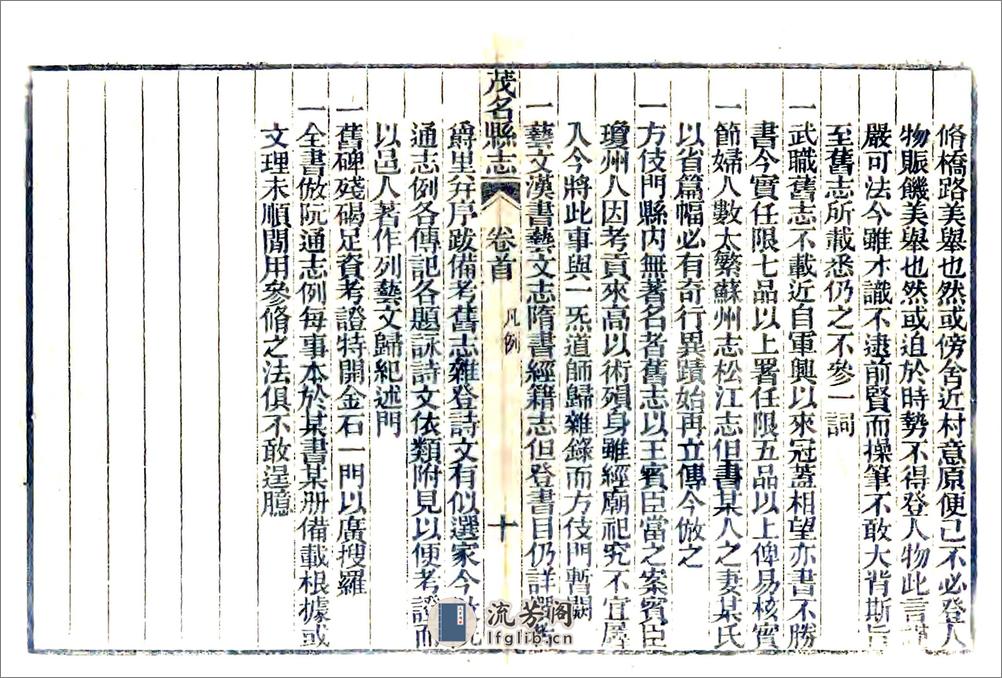 脩橋路美舉也然或傍舍近村意原便己不必登人
物賑饑美舉也然或迫於時勢不得登人物此言謹
嚴可法今雖才識不逮前賢而操筆不敢大背斯旨
至舊志所載悉仍之不參一詞
一武職舊志不載近自軍興以來冠蓋相望亦書不勝
書今實任限七品以上署任限五品以上俾易核實
一節婦人數太繁蘇州志松江志但書某人之妻某氏
以省篇幅必有奇行異蹟始再立傳今倣之
一方伎門縣內無著名者舊志以王賓臣當之案賓臣
瓊州人因考貢來高以術殞身雖經廟祀究不宜孱
入今將此事與一炁道師歸雜錄而方伎門暫闕
一藝文漢書藝文志隋書經籍志但登書目仍詳
茂名縣志
卷首
凡例
十
爵里弁序跋備考舊志雜登詩文有似選家今
通志例各傳記各題詠詩文依類附見以便考證而
以邑人著作列藝文歸紀述門
一舊碑殘碣足資考證特開金石一門以廣搜羅
一全書倣阮通志例每事本於某書某册備載根據或
文理未順間用參脩之法俱不敢逞臆
流芳阁
lfglib.cn